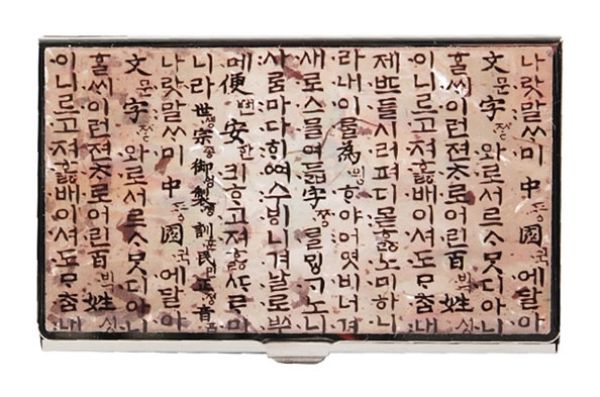 나랏말ᄊᆞ미中듕國귁에달아
文문字ᄍᆞᆼ와로서르ᄉᆞᄆᆞᆺ디아니
ᄒᆞᆯᄊᆡ이런젼ᄎᆞ로어린百ᄇᆡᆨ姓셔ᇰ
이니르고져호ᇙ배이셔도ᄆᆞᄎᆞᆷ내
제ᄠᅳ들시러펴디몯ᄒᆞᇙ노미하니
라내이ᄅᆞᆯ為윙ᄒᆞ야어엿비너겨
새로스믈여듧字ᄍᆞᆼᄅᆞᆯᄆᆡᇰᄀᆞ노니
사ᄅᆞᆷ마다ᄒᆡᅇᅧ수ᄫᅵ니겨날로ᄡᅮ
메便뼌安ᅙᅡᆫ킈ᄒᆞ고져ᄒᆞᇙᄯᆞᄅᆞ미
니라世솅宗종御ᅌᅥᆼ製졩訓훈民민正졍音ᅙᅳᆷ
나랏말ᄊᆞ미中듕國귁에달아
文문字ᄍᆞᆼ와로서르ᄉᆞᄆᆞᆺ디아니
ᄒᆞᆯᄊᆡ이런젼ᄎᆞ로어린百ᄇᆡᆨ姓셔ᇰ
이니르고져호ᇙ배이셔도ᄆᆞᄎᆞᆷ내